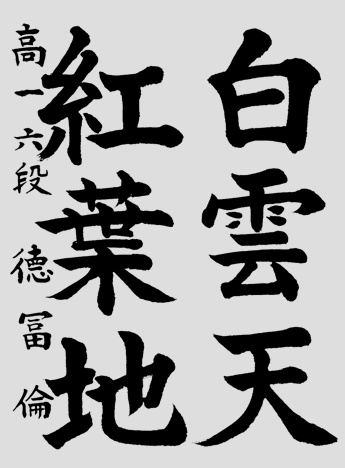 白雲天
紅葉地
高一六段 德冨倫